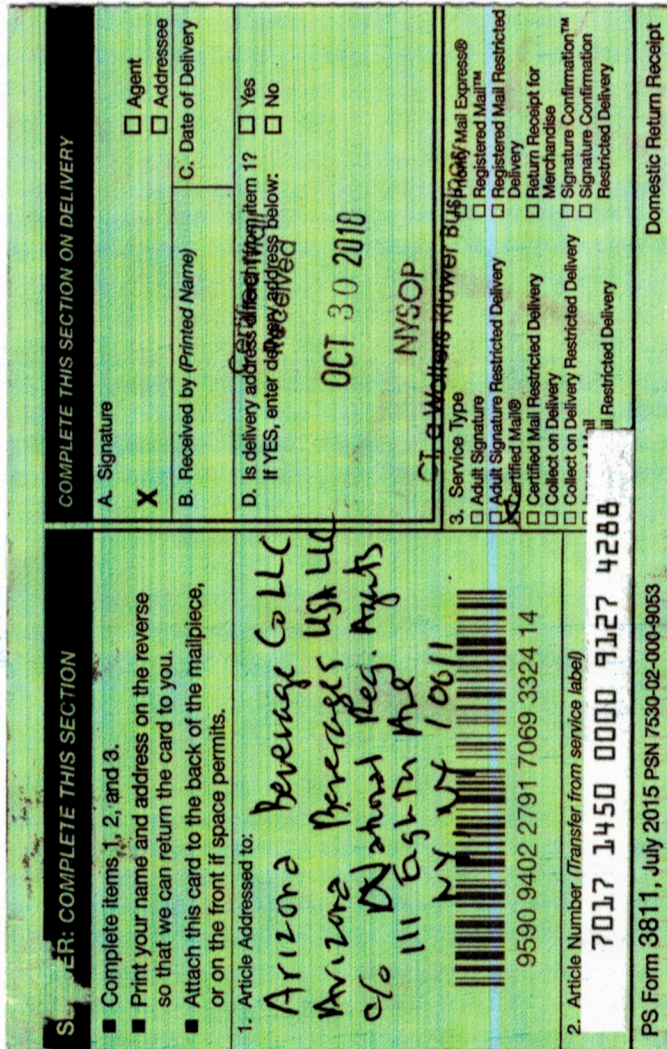 ER: COMPLETE THIS SECTION
■ Complete items 1, 2, and 3.
■ Print your name and address on the reverse
so that we can return the card to you.
■ Attach this card to the back of the mailpiece,
or on the front if space permits.
1. Article Addressed to:
Arizona Beverage Co LLC
Arizona Beverages USA LLC
c/o National Reg. Agents
111 Eighth Ave
NY NY 10011
9590 9402 2791 7069 3324 14
2. Article Number (Transfer from service label)
7017 1450 0000 9127 4288
COMPLETE THIS SECTION ON DELIVERY
A. Signature
X
☐ Agent
☐ Addressee
B. Received by (Printed Name)
C. Date of Delivery
D. Is delivery address different from item 1? ☐ Yes
If YES, enter delivery address below: ☐ No
Certified Mail
Received
OCT 30 2018
NYSOP
CT, a Wolters Kluwer Business
3. Service Type
☐ Adult Signature
☐ Adult Signature Restricted Delivery
☒ Certified Mail®
☐ Certified Mail Restricted Delivery
☐ Collect on Delivery
☐ Collect on Delivery Restricted Delivery
Restricted Delivery
☐ Priority Mail Express®
☐ Registered Mail™
☐ Registered Mail Restricted
Delivery
☐ Return Receipt for
Merchandise
☐ Signature Confirmation™
☐ Signature Confirmation
Restricted Delivery
PS Form 3811, July 2015 PSN 7530-02-000-9053
Domestic Return Receipt